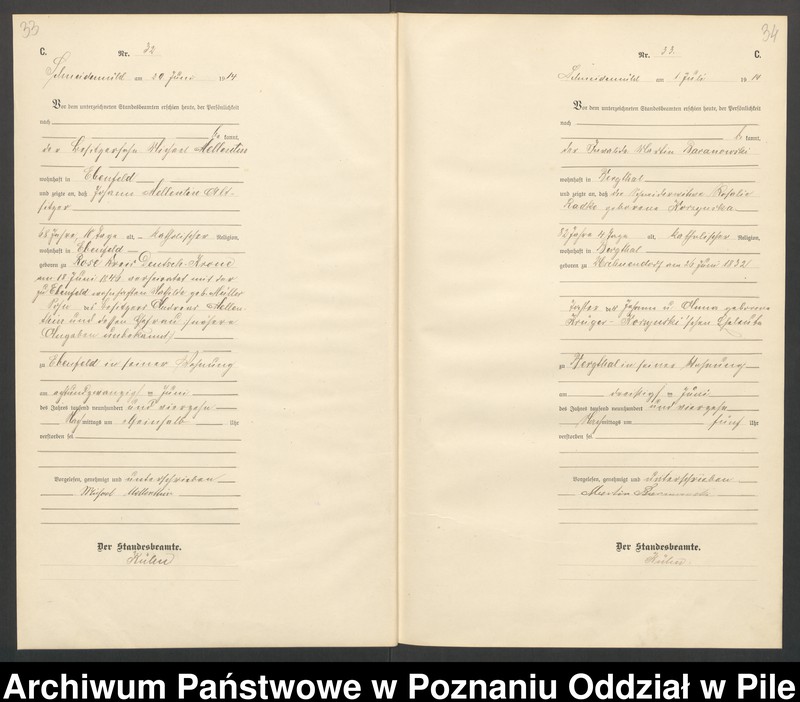 33
C.
Nr. 32
Schneidemühl am 30 Juni 1914
Vor dem unterzeichneten Standesbeamten erschien heute, der Persönlichkeit
nach
be kannt,
der Besitzersohn Michael Mellentin
wohnhaft in Ebenfeld
und zeigte an, daß Johann Mellentin Alt-
sitzer
Jahre, 18 Tage alt, katholischer Religion,
wohnhaft in Ebenfeld
geboren zu Rose Kreis Deutsch-Krone
am Juni verheiratet mit der
zu Ebenfeld wohnhaften geb. Müller
Sohn des Besitzers Andreas Mellen-
tin und dessen Ehefrau nähere
Angaben unbekannt
zu Ebenfeld in seiner Wohnung
am achtundzwanzigsten Juni
des Jahres tausend neunhundert und vierzehn
Nachmittags um Uhr
verstorben sei.
Vorgelesen, genehmigt und unterschrieben
Michael Mellentin
Der Standesbeamte.
34
Nr. 33.
C.
Schneidemühl am 1 Juli 1914
Vor dem unterzeichneten Standesbeamten erschien heute, der Persönlichkeit
nach
be kannt,
der Invalide Martin Baranowski
wohnhaft in Bergthal
und zeigte an, daß die Schneiderwitwe Rosalie
Radke geborene
82 Jahre 4 Tage alt, katholischer Religion,
wohnhaft in Bergthal
geboren zu am 26 Juni 1832
Tochter der Johann u. Anna geborene
Krüger- 'schen Eheleute
zu Bergthal in seiner Wohnung
am dreißigsten Juni
des Jahres tausend neunhundert und vierzehn
Nachmittags um fünf Uhr
verstorben sei.
Vorgelesen, genehmigt und unterschrieben
Martin Baranowski
Der Standesbeamte.
Archiwum Państwowe w Poznaniu Oddział w Pile